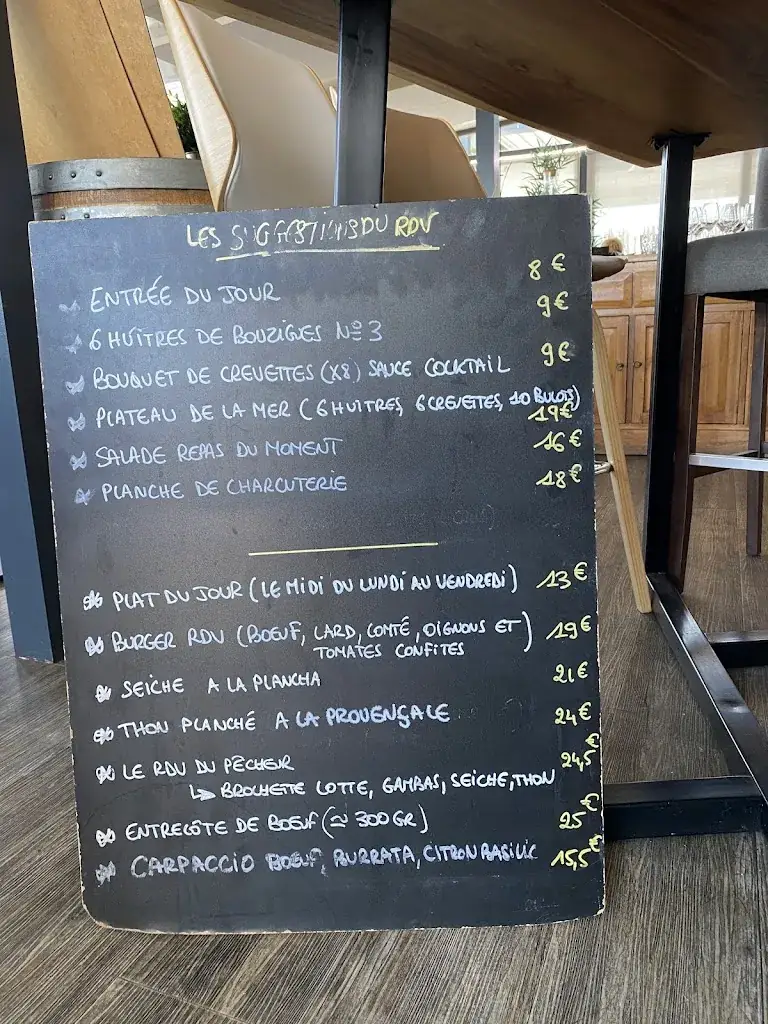 LES SUGGESTIONS DU RDV
ENTRÉE DU JOUR 8€
6 HUÎTRES DE BOUZIGUES Nº3 9€
BOUQUET DE CREVETTES (X8) SAUCE COCKTAIL 9€
PLATEAU DE LA MER (6 HUITRES, 6 CREVETTES, 10 BULOTS) 19€
SALADE REPAS DU MOMENT 16€
PLANCHE DE CHARCUTERIE 18€
PLAT DU JOUR (LE MIDI DU LUNDI AU VENDREDI) 13€
BURGER RDV (BOEUF, LARD, COMTÉ, OIGNONS ET 19€
TOMATES CONFITES)
SEICHE A LA PLANCHA 21€
THON PLANCHÉ A LA PROVENÇALE 24€
LE RDV DU PÊCHEUR 24,5€
↳ BROCHETTE LOTTE, GAMBAS, SEICHE, THON
ENTRECÔTE DE BOEUF (≃ 300GR) 25€
CARPACCIO BOEUF, BURRATA, CITRON BASILIC 15,5€